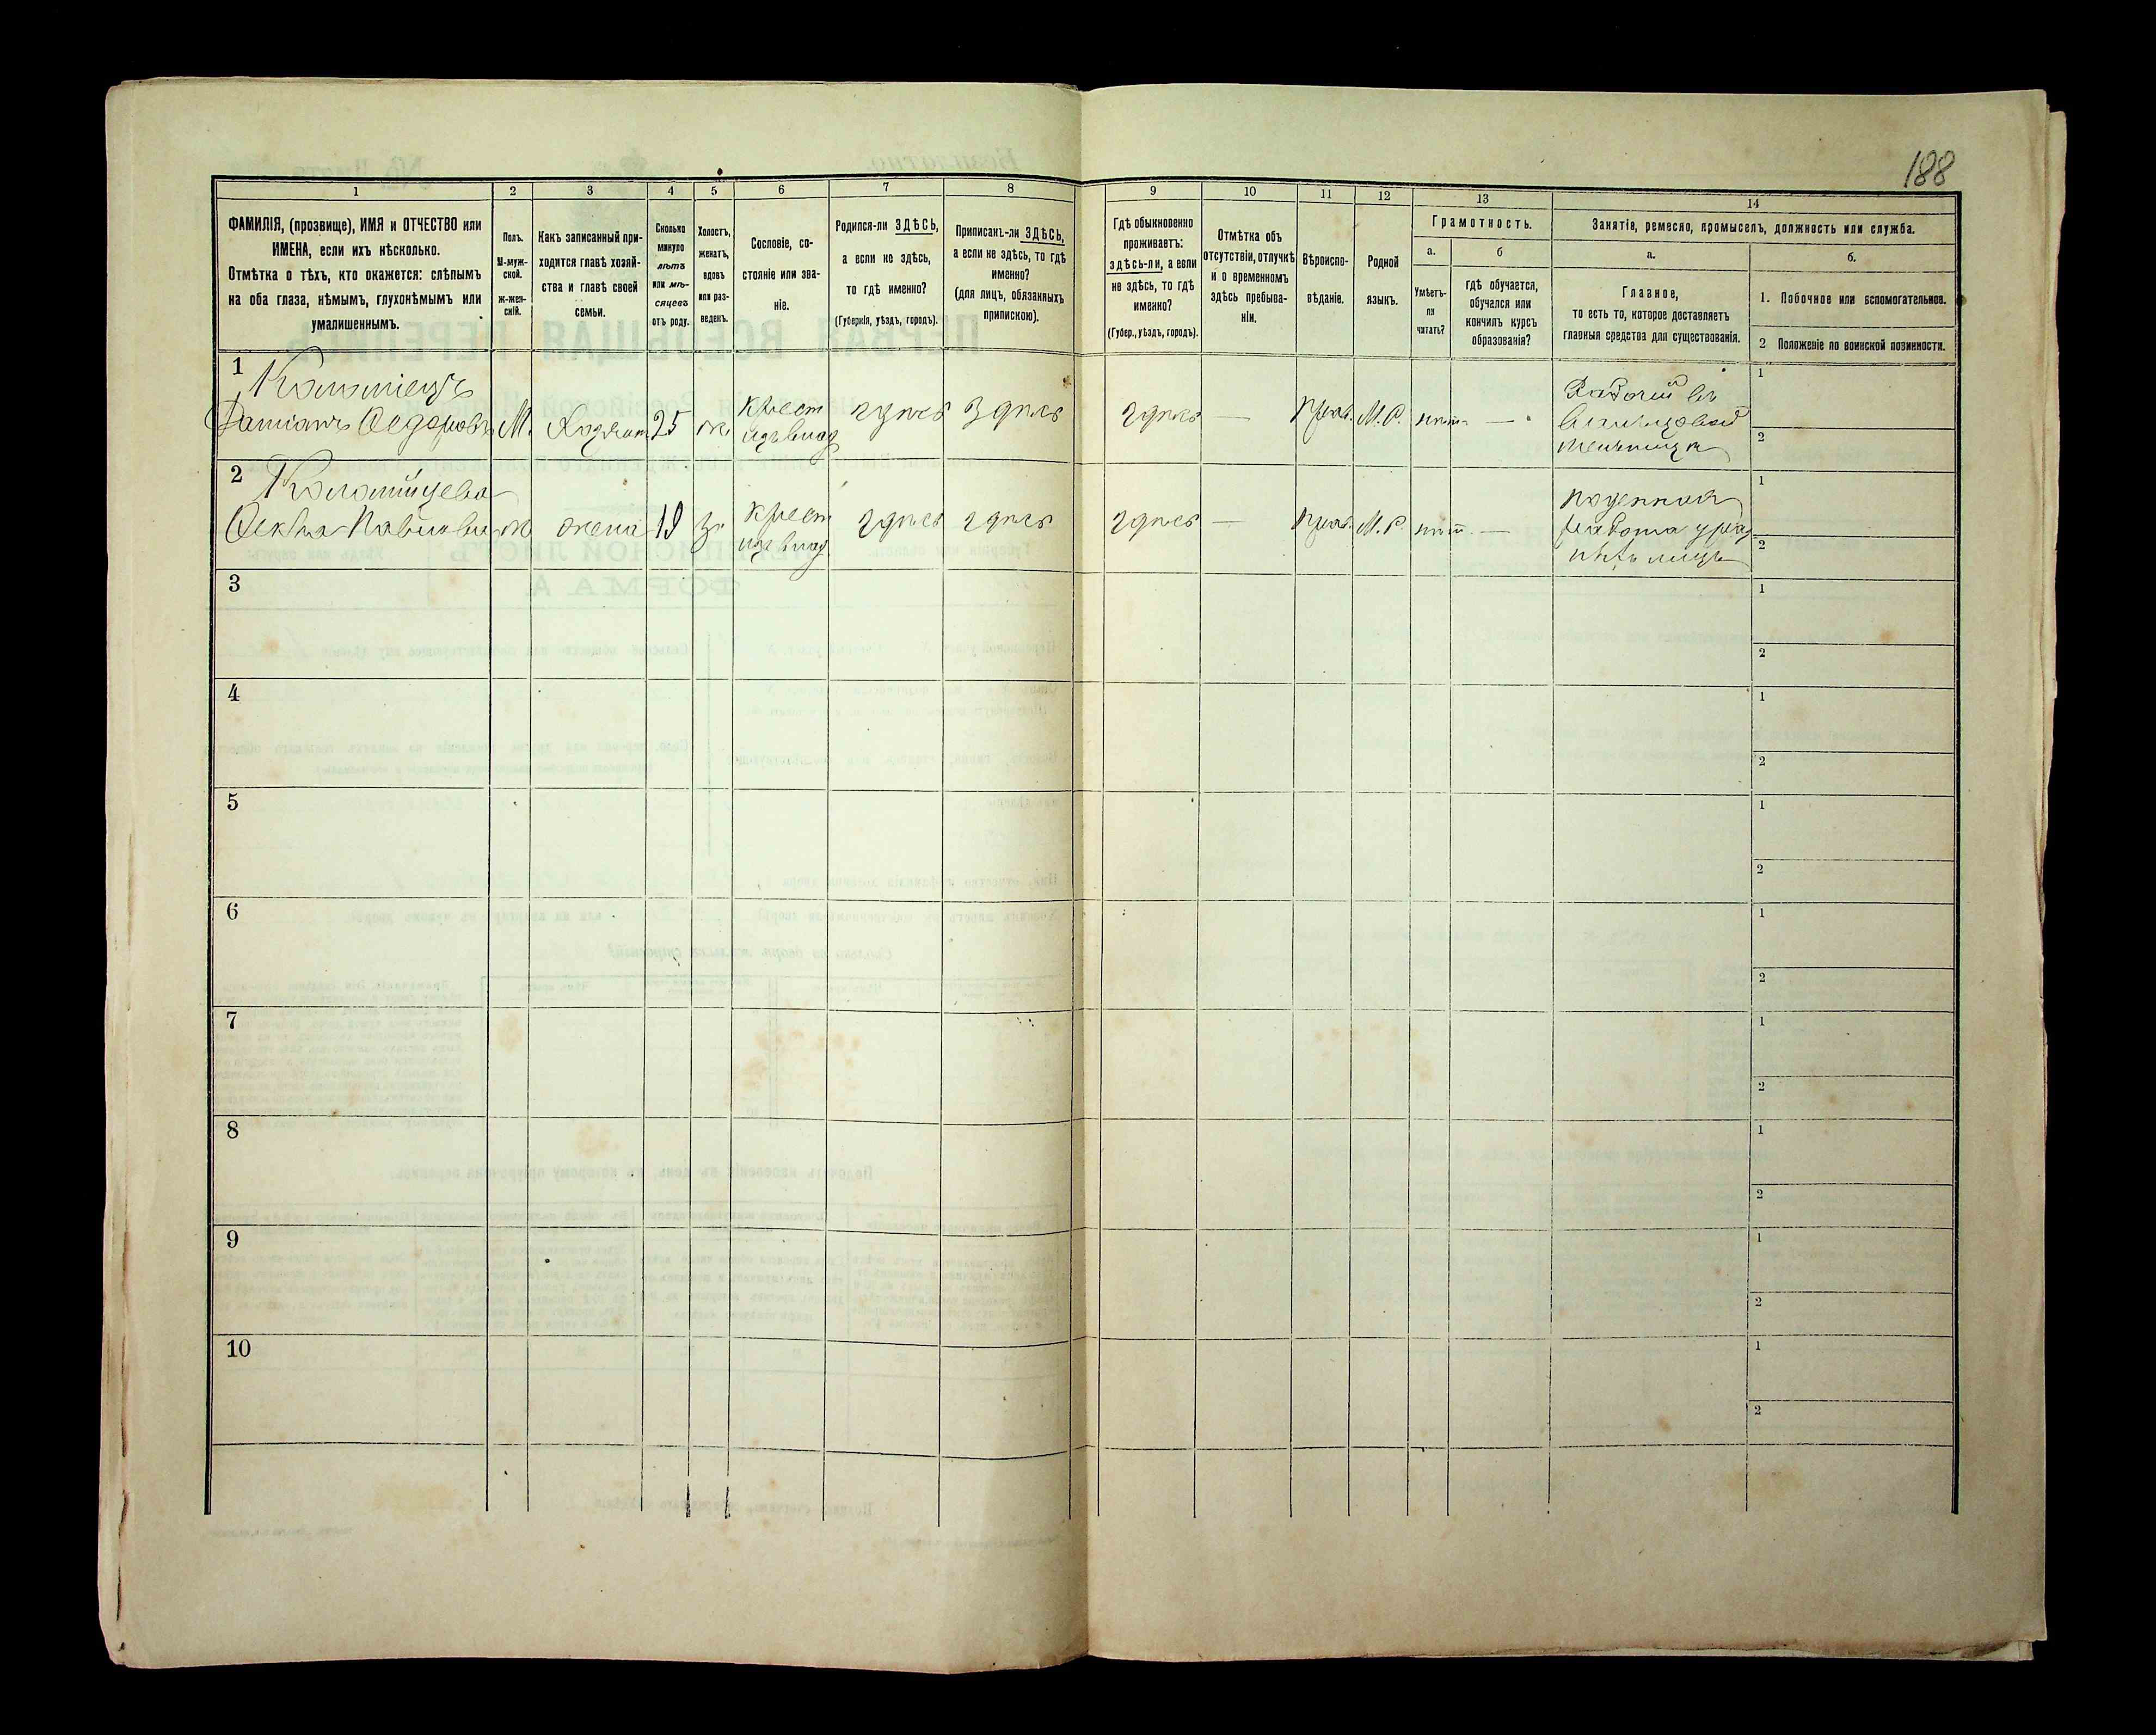 188
1
2
3
4
5
6
7
8
9
10
11
12
13
14
ФАМИЛІЯ, (прозвище), ИМЯ и ОТЧЕСТВО или
ИМЕНА, если ихъ нѣсколько.
Отмѣтка о тѣхъ, кто окажется: слѣпымъ
на оба глаза, нѣмымъ, глухонѣмымъ или
умалишеннымъ.
Полъ.
М-муж-
ской.
ж-жен-
скій.
Какъ записанный при-
ходится главѣ хозяй-
ства и главѣ своей
семьи.
Сколько
минуло
лѣтъ
или мѣ-
сяцевъ
отъ роду.
Холостъ,
женатъ,
вдовъ
или раз-
веденъ.
Сословіе, со-
стояніе или зва-
ніе.
Родился-ли ЗДѢСЬ,
а если не здѣсь,
то гдѣ именно?
(Губернія, уѣздъ, городъ).
Приписанъ-ли ЗДѢСЬ,
а если не здѣсь, то гдѣ
именно?
(для лицъ, обязанныхъ
припискою).
Гдѣ обыкновенно
проживаетъ:
здѣсь-ли, а если
не здѣсь, то гдѣ
именно?
(Губер., уѣздъ, городъ).
Отмѣтка объ
отсутствіи, отлучкѣ
и о временномъ
здѣсь пребыва-
ніи.
Вѣроиспо-
вѣданіе.
Родной
языкъ.
Грамотность.
а.
б
Умѣетъ-
ли
читать?
гдѣ обучается,
обучался или
кончилъ курсъ
образованія?
Занятіе, ремесло, промыселъ, должность или служба.
а.
б.
Главное,
то есть то, которое доставляетъ
главныя средства для существованія.
1. Побочное или вспомогательное.
2 Положеніе по воинской повинности.
1
Коломіецъ
Даміанъ Ѳедоровъ М. Хозяинъ 25 ж. Крест здѣсь здѣсь здѣсь — Прав. М.Р. нѣтъ —
изъ влад
Рабочій въ
мельницѣ
1
2
2
Коломійцева
Ѳекла Павлова ж жена 19 з. Крест здѣсь здѣсь здѣсь — Прав. М.Р. нѣтъ —
изъ влад.
Поденная
работа у раз
ныхъ лицъ
1
2
3
1
2
4
1
2
5
1
2
6
1
2
7
1
2
8
1
2
9
1
2
10
1
2